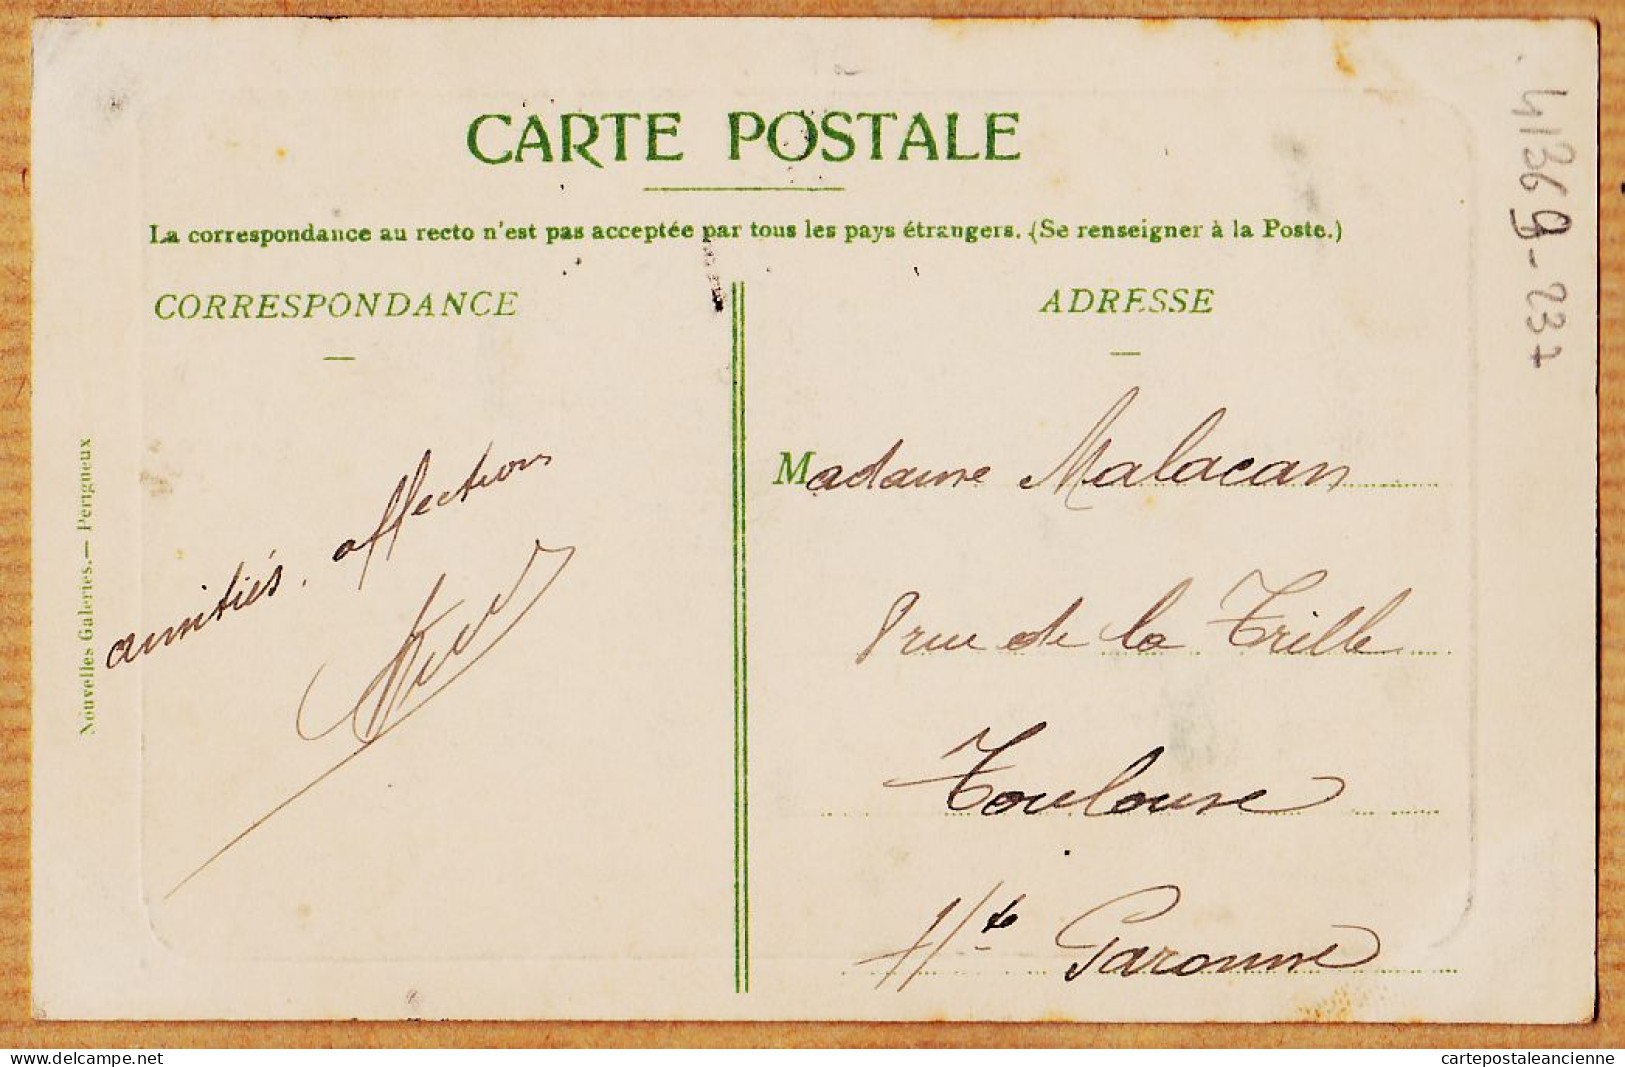 CARTE POSTALE
La correspondance au recto n'est pas acceptée par tous les pays étrangers. (Se renseigner à la Poste.)
CORRESPONDANCE
amitiés. affection
Nouvelles Galeries.— Périgueux
ADRESSE
Madame Malacan
rue de la Trille
Toulouse
Hte Garonne
41369-237
cartepostaleancienne